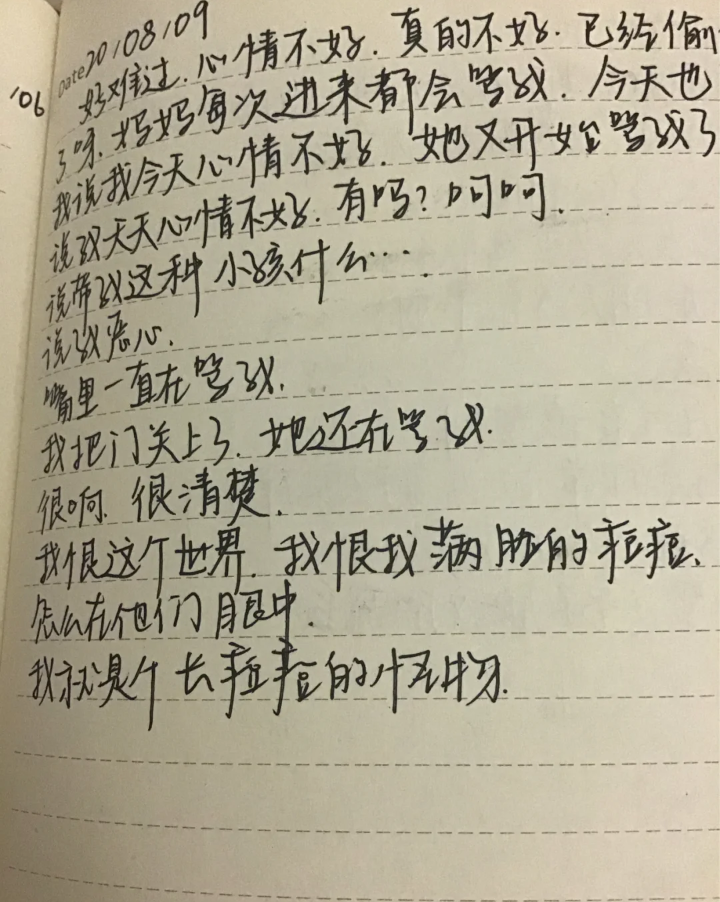 '06
Date 20108109
好难过. 心情不好. 真的不好. 已经偷
了呀. 妈妈每次进来都会骂我. 今天也
我说我今天心情不好. 她又开始骂我了
说我天天心情不好. 有吗? 呵呵.
说带我这种小孩什么…
说我恶心.
嘴里一直在骂我.
我把门关上了. 她还在骂我.
很响. 很清楚.
我恨这个世界. 我恨我满脸的痘痘.
怎么在他们眼中.
我就是个长痘痘的怪物.